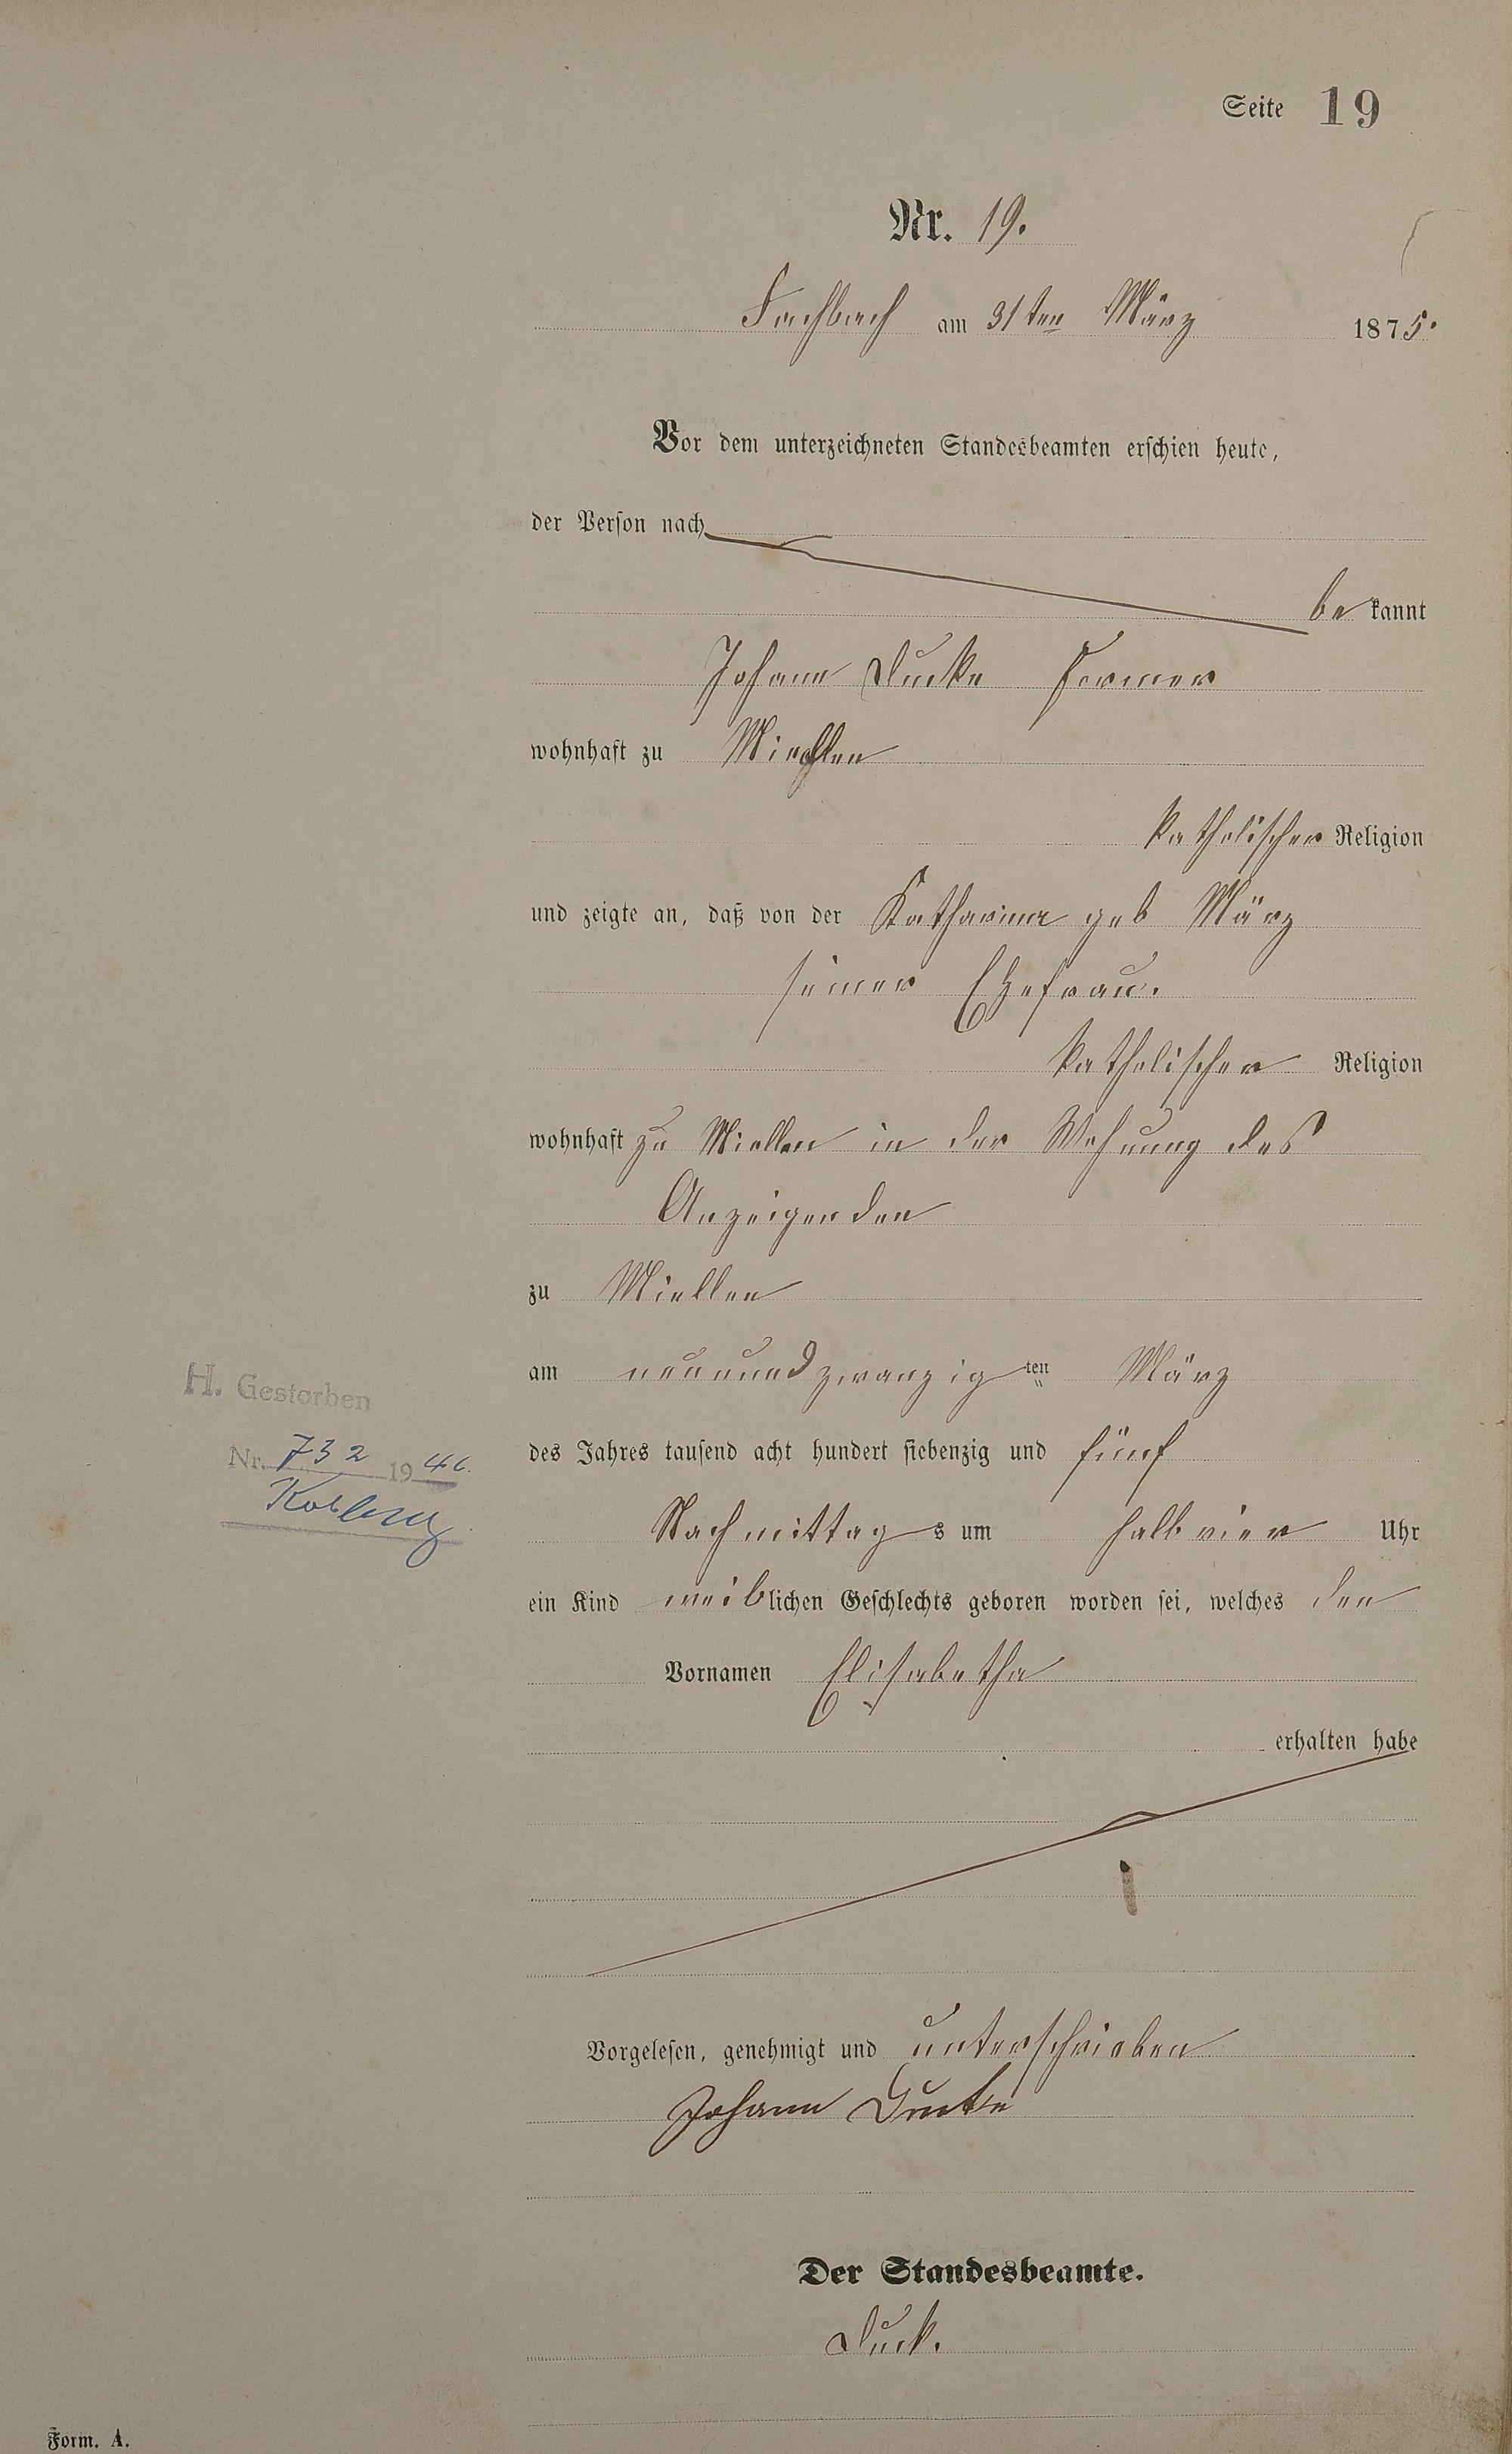 Seite 19
Nr. 19.
Fachbach am 31ten März 1875.
Vor dem unterzeichneten Standesbeamten erschien heute,
der Person nach
be kannt
Johann Ducke Former
wohnhaft zu Miehlen
katholischer Religion
und zeigte an, daß von der Katharina geb März
seiner Ehefrau.
katholischer Religion
wohnhaft zu Miellen in der Wohnung des
Anzeigenden
zu Miellen
am neunundzwanzig ten März
des Jahres tausend acht hundert siebenzig und fünf
Nachmittag s um halb vier Uhr
ein Kind weiblichen Geschlechts geboren worden sei, welches den
Vornamen Elisabetha
erhalten habe
H. Gestorben
Nr. 732 19
Koblenz
Vorgelesen, genehmigt und unterschrieben
Johann Ducke
Der Standesbeamte.
Duck.
Form. A.